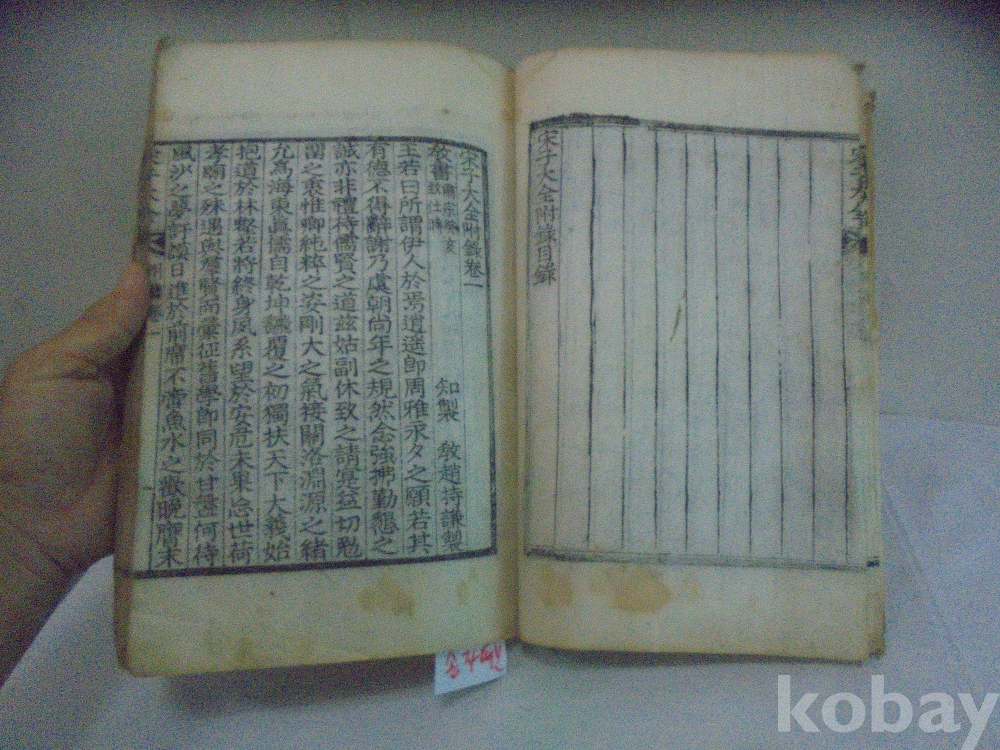 宋子大全
宋子大全附錄目錄
宋子大全附錄卷一
敎書 肅宗癸亥致仕時 知製 敎趙持謙製
王若曰所謂伊人於焉逍遥卽周雅永夕之願若其
有德不得辭謝乃虞朝尚年之規然念強拂勤懇之
誠亦非禮待儒賢之道玆姑副休致之請冞益切勉
留之衷惟卿純粹之姿剛大之氣接關洛淵源之緖
允爲海東眞儒自乾坤飜覆之初獨扶天下大義始
抱道於林壑若將終身夙系望於安危未果忘世荷
孝廟之殊遇與羣賢而彙征舊學卽同於甘盤何待
風沙之夢訏謨日進於前席不啻魚水之歡晩膺末
kobay